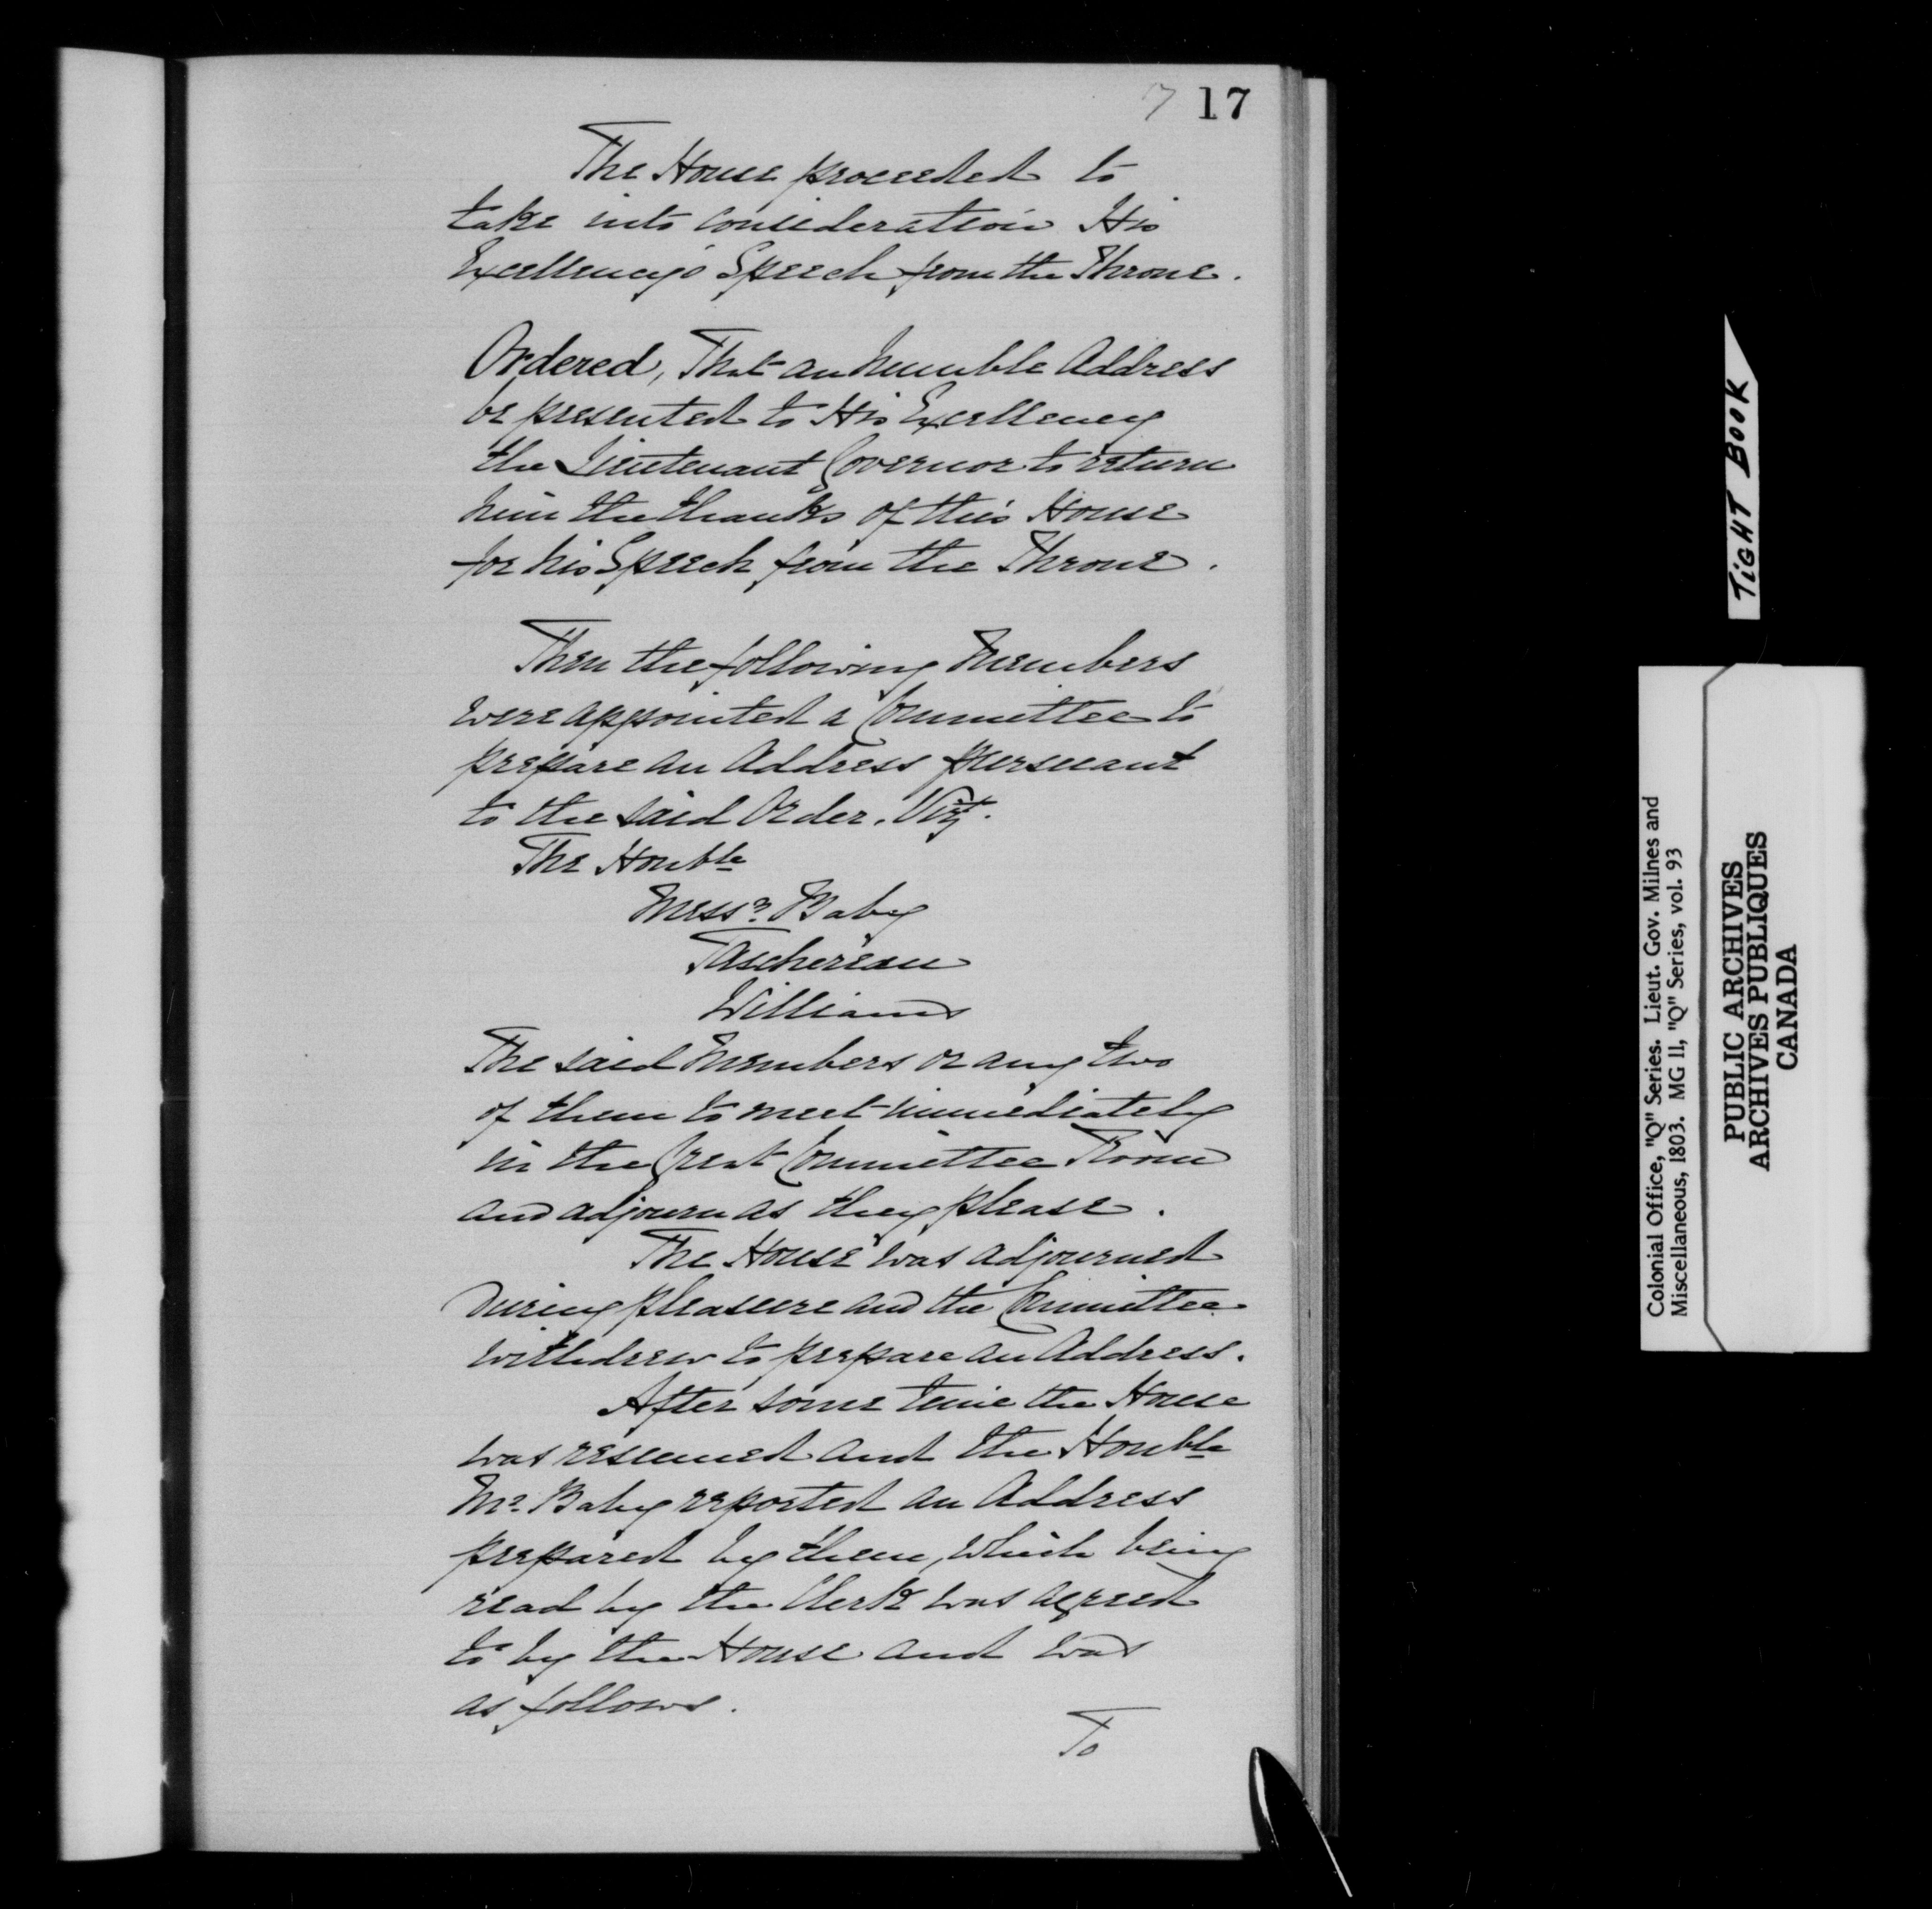 7 17
The House proceeded to
take into consideration His
Excellency's Speech from the Throne.
Ordered, That an humble Address
be presented to His Excellency
the Lieutenant Governor to return
him the thanks of this House
for his Speech from the Throne.
Then the following Members
were appointed a Committee to
prepare an Address pursuant
to the said Order. Vizt.
The Honble
Messrs. Baby
Taschereau
Williams
The said Members or any two
of them to meet immediately
in the Great Committee Room
and adjourn as they please.
The House was adjourned
during pleasure and the Committee
withdrew to prepare an Address.
After some time the House
was resumed and the Honble
Mr. Baby reported an Address
prepared by them, which being
read by the Clerk was agreed
to by the House and was
as follows.
To
TIGHT BOOK
Colonial Office, "Q" Series. Lieut. Gov. Milnes and
Miscellaneous, 1803. MG 11, "Q" Series, vol. 93
PUBLIC ARCHIVES
ARCHIVES PUBLIQUES
CANADA